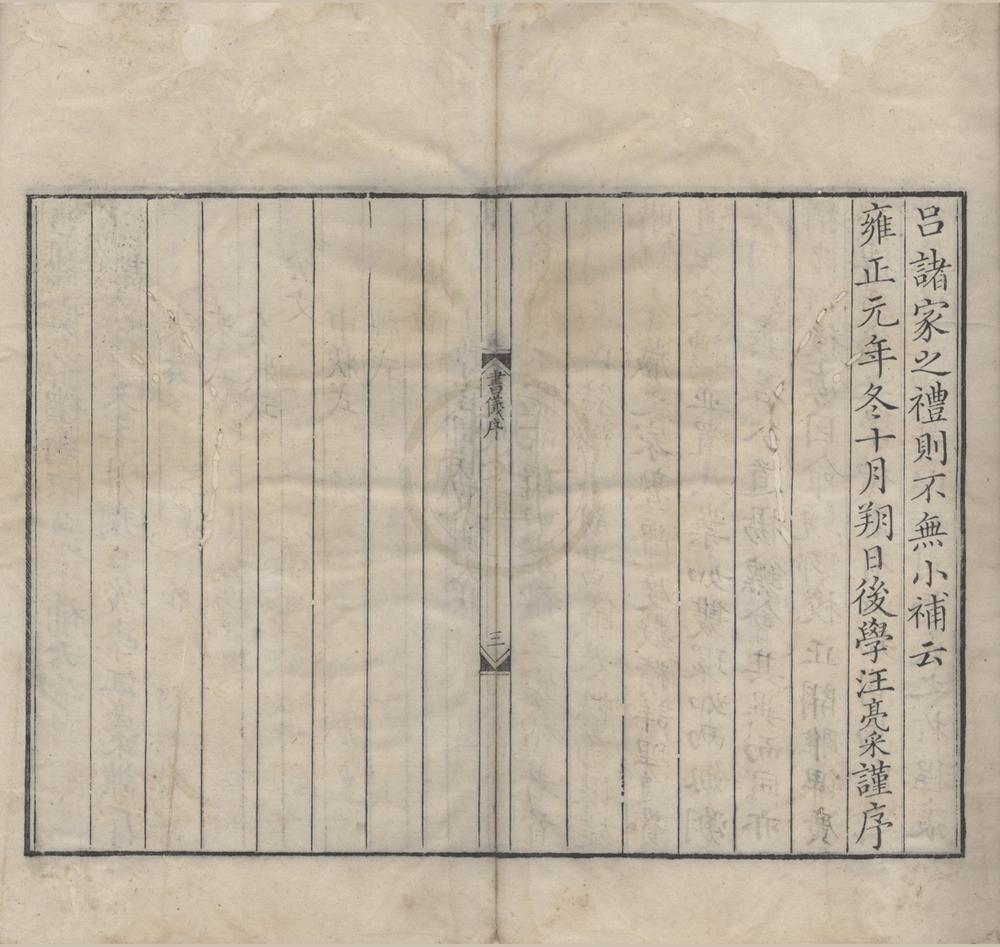 呂諸家之禮則不無小補云
雍正元年冬十月朔日後學汪亮采謹序
書儀序
三